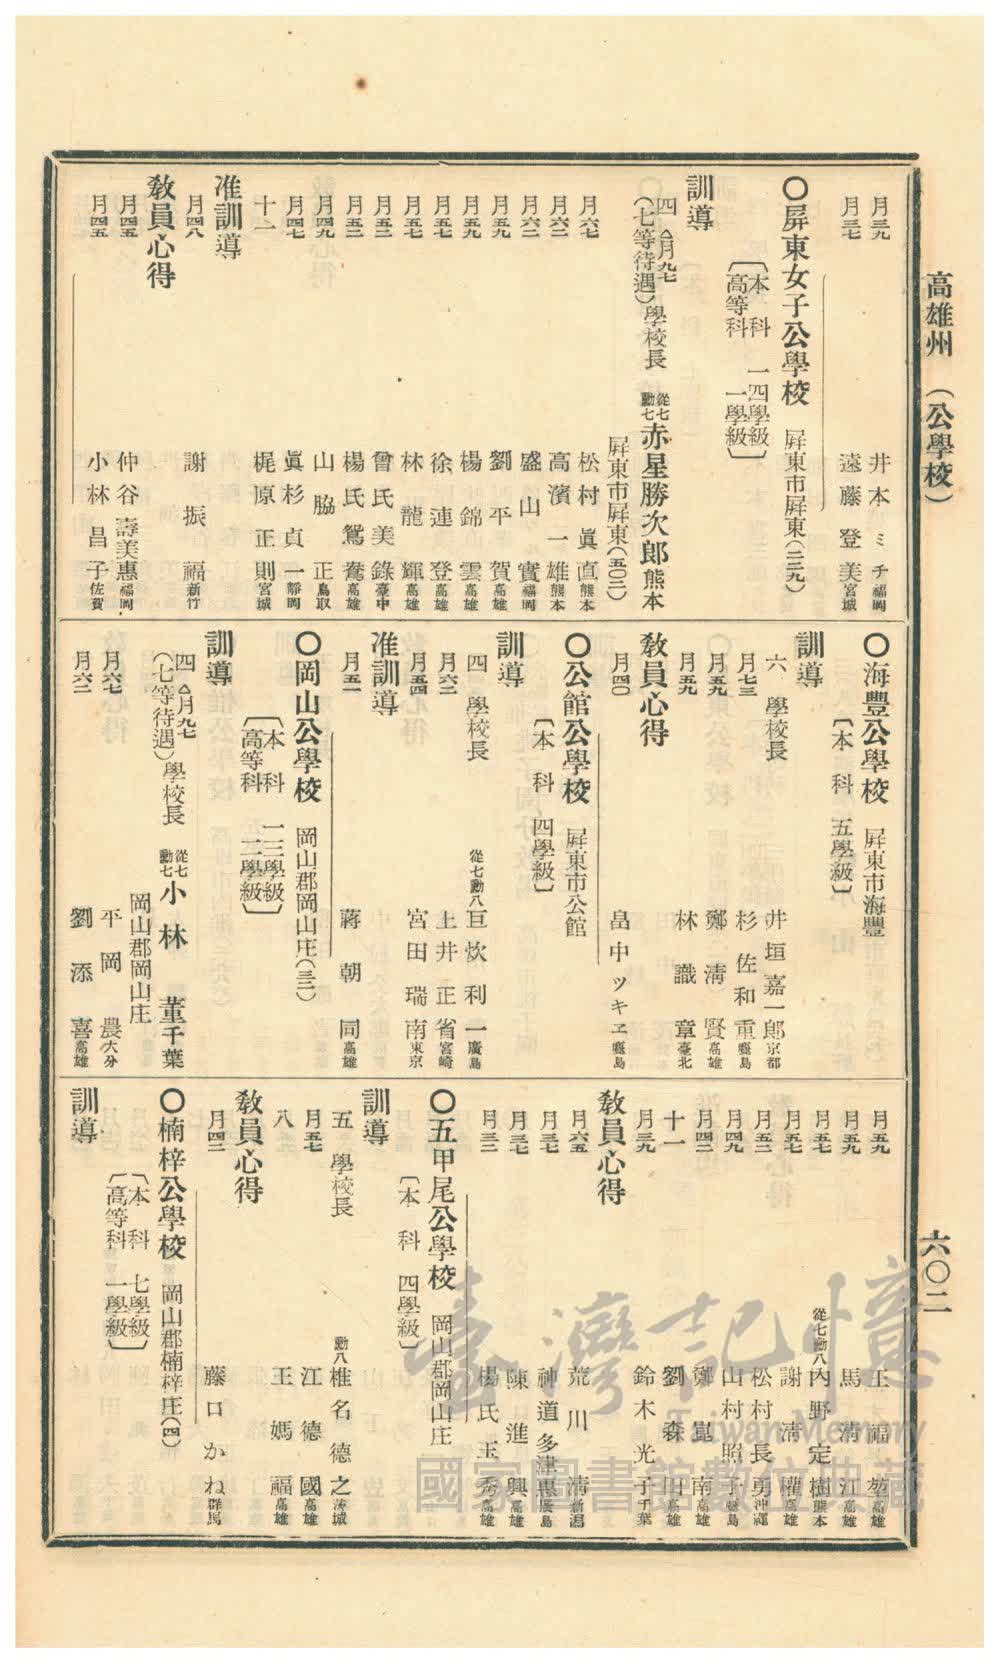 高雄州 (公學校)
六〇二
月三九 井本ミチ 福岡
月三七 遠藤登美 宮城
〇屏東女子公學校 屏東市屏東(三二九)
〔本科 一四學級
高等科 一學級〕
訓導
四 △月九七
(七等待遇)學校長 從七勳七 赤星勝次郎 熊本
屏東市屏東(五〇三)
月六七 松村眞直 熊本
月六二 高濱一雄 熊本
月六二 盛山實 福岡
月五九 劉平賀 高雄
月五九 楊錦雲 高雄
月五七 徐連登 高雄
月五七 林龍輝 高雄
月五二 曾氏美錄 臺中
月五二 楊氏鴛鴦 高雄
月四九 山脇正 鳥取
月四七 眞杉貞一 靜岡
十一 梶原正則 宮城
准訓導
月四八 謝振福 新竹
教員心得
月四五 仲谷壽美惠 福岡
月四五 小林昌子 佐賀
〇海豐公學校 屏東市海豐
〔本科 五學級〕
訓導
六 學校長 井垣嘉一郎 京都
月七三 杉佐和重 廣島
月五九 鄭清賢 高雄
月五九 林識章 臺北
教員心得
月四〇 畠中ツキヱ 廣島
〇公館公學校 屏東市公館
〔本科 四學級〕
訓導
四 學校長 從七勳八 亘炊利一 廣島
月六二 上井正省 宮崎
月五四 宮田瑞南 東京
准訓導
月五一 蔣朝同 高雄
〇岡山公學校 岡山郡岡山庄(三)
〔本科 二三學級
高等科 二學級〕
訓導
四 △月九七
(七等待遇)學校長 從七勳七 小林董 千葉
岡山郡岡山庄
月六七 平岡農 大分
月六二 劉添喜 高雄
月五九 王福堃 高雄
月五九 馬清江 高雄
月五七 從七勳八 內野定樹 熊本
月五七 謝清權 高雄
月五二 松村長勇 沖繩
月四九 山村照子 廣島
月四二 鄭崑南 高雄
十一 劉森田 高雄
月三九 鈴木光子 千葉
教員心得
月六五 荒川清 新潟
月三七 神道多津惠 廣島
月三七 陳進興 高雄
月三二 楊氏玉秀 高雄
〇五甲尾公學校 岡山郡岡山庄
〔本科 四學級〕
訓導
五 學校長 勳八 椎名德之 茨城
月五七 江德國 高雄
八 王媽福 高雄
教員心得
月四二 藤口かね 群馬
〇楠梓公學校 岡山郡楠梓庄(四)
〔本科 七學級
高等科 一學級〕
訓導
臺灣記憶
Taiwan Memory
國家圖書館數位典藏